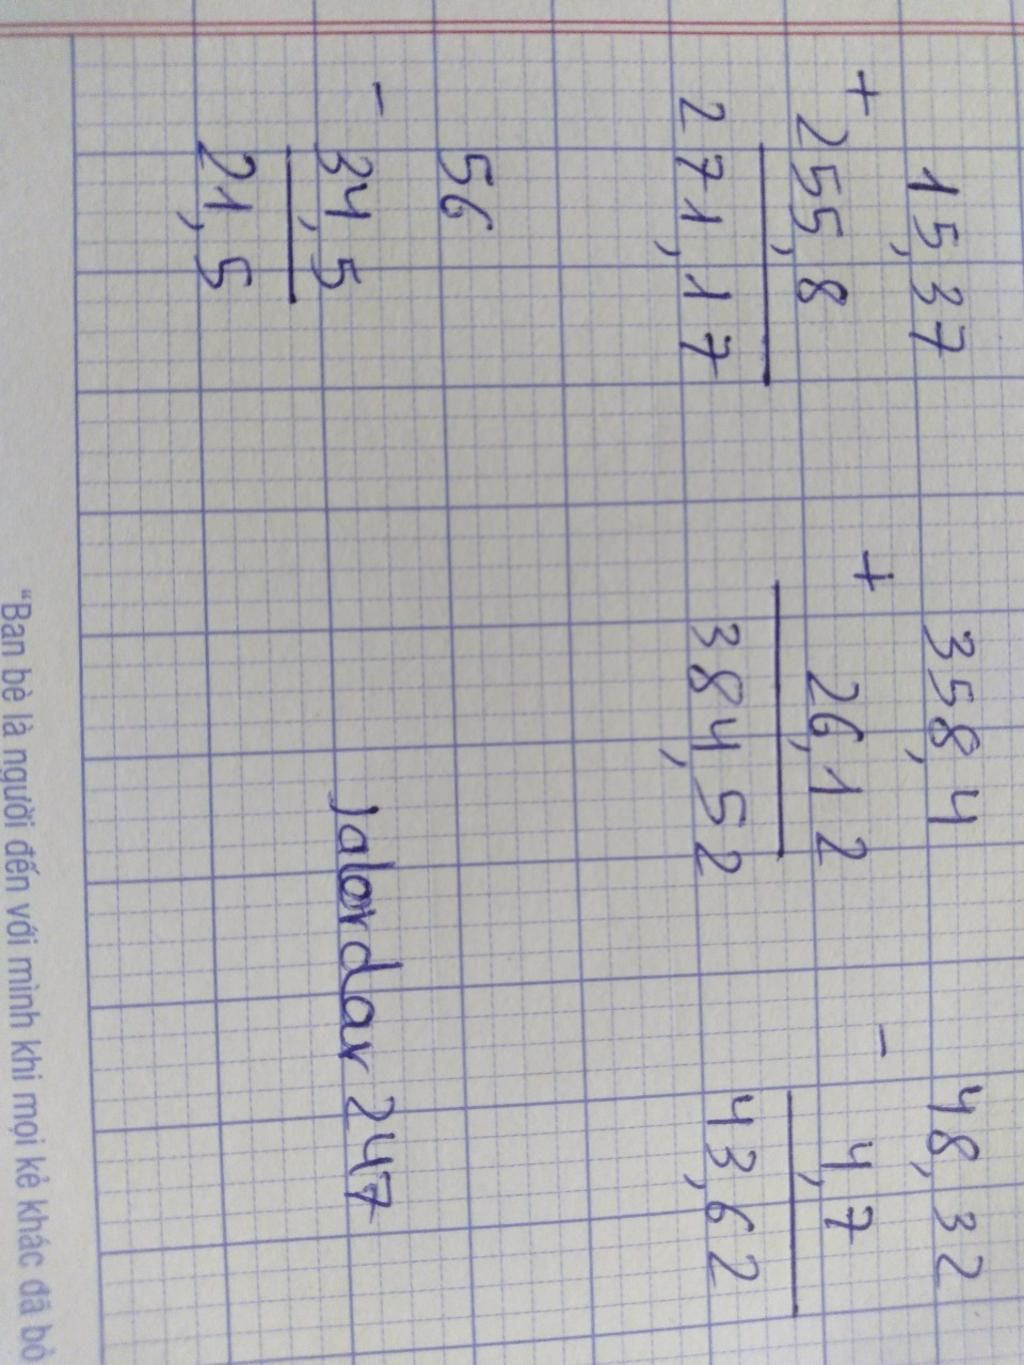 15,37
+
255,8
271,17
358,4
+
26,12
384,52
48,32
-
4,7
43,62
56
-
34,5
21,5
Jalordar 247
"Bạn bè là người đến với mình khi mọi kẻ khác đã bỏ